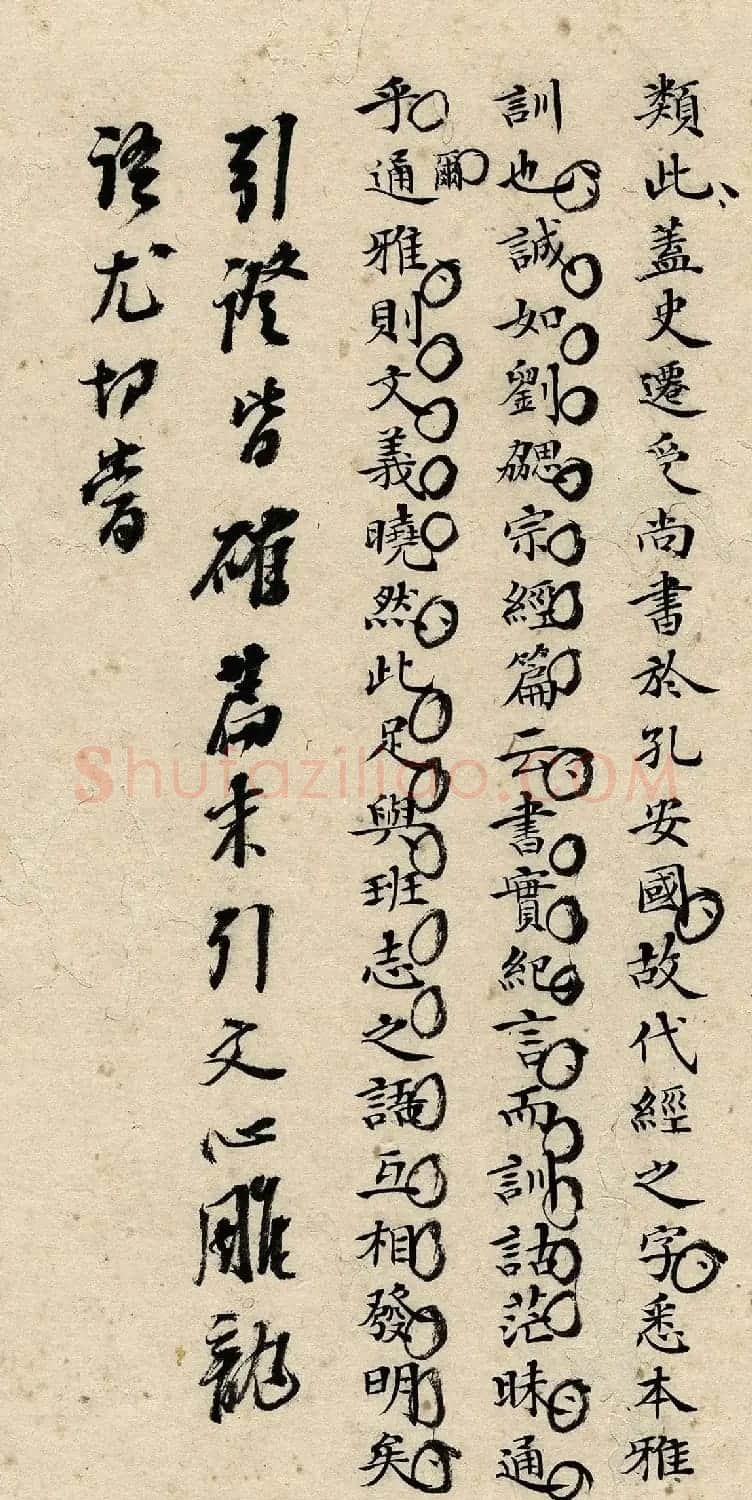 類此蓋史遷受尚書於孔安國故代經之字悉本雅
訓也誠如劉勰宗經篇云書實紀言而訓詁茫昧通
爾
乎通雅則文義曉然此足與班志之語互相發明矣
引證皆確篇末引文心雕龍
語尤切當
Shufaziliao.COM